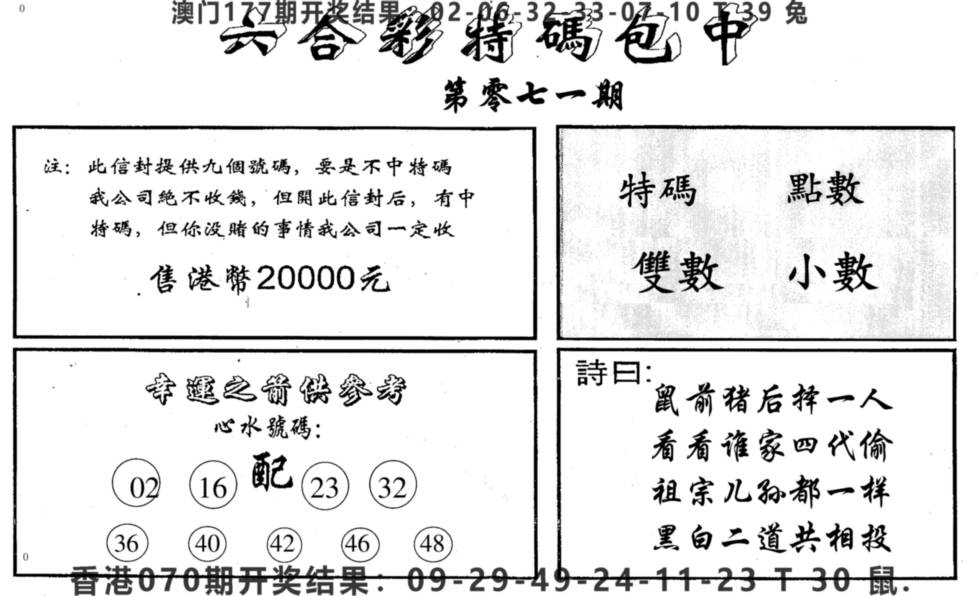 澳门177期开奖结果：02-06-32-33-07-10 T 39 兔
六合彩特碼包中
第零七一期
注：此信封提供九個號碼，要是不中特碼
我公司絕不收錢，但開此信封后，有中
特碼，但你没賭的事情我公司一定收
售港幣20000元
特碼 點數
雙數 小數
幸運之前供參考
心水號碼：
02 16 配 23 32
36 40 42 46 48
詩曰：
鼠前猪后择一人
看看谁家四代偷
祖宗儿孙都一样
黑白二道共相投
香港070期开奖结果：09-29-49-24-11-23 T 30 鼠.